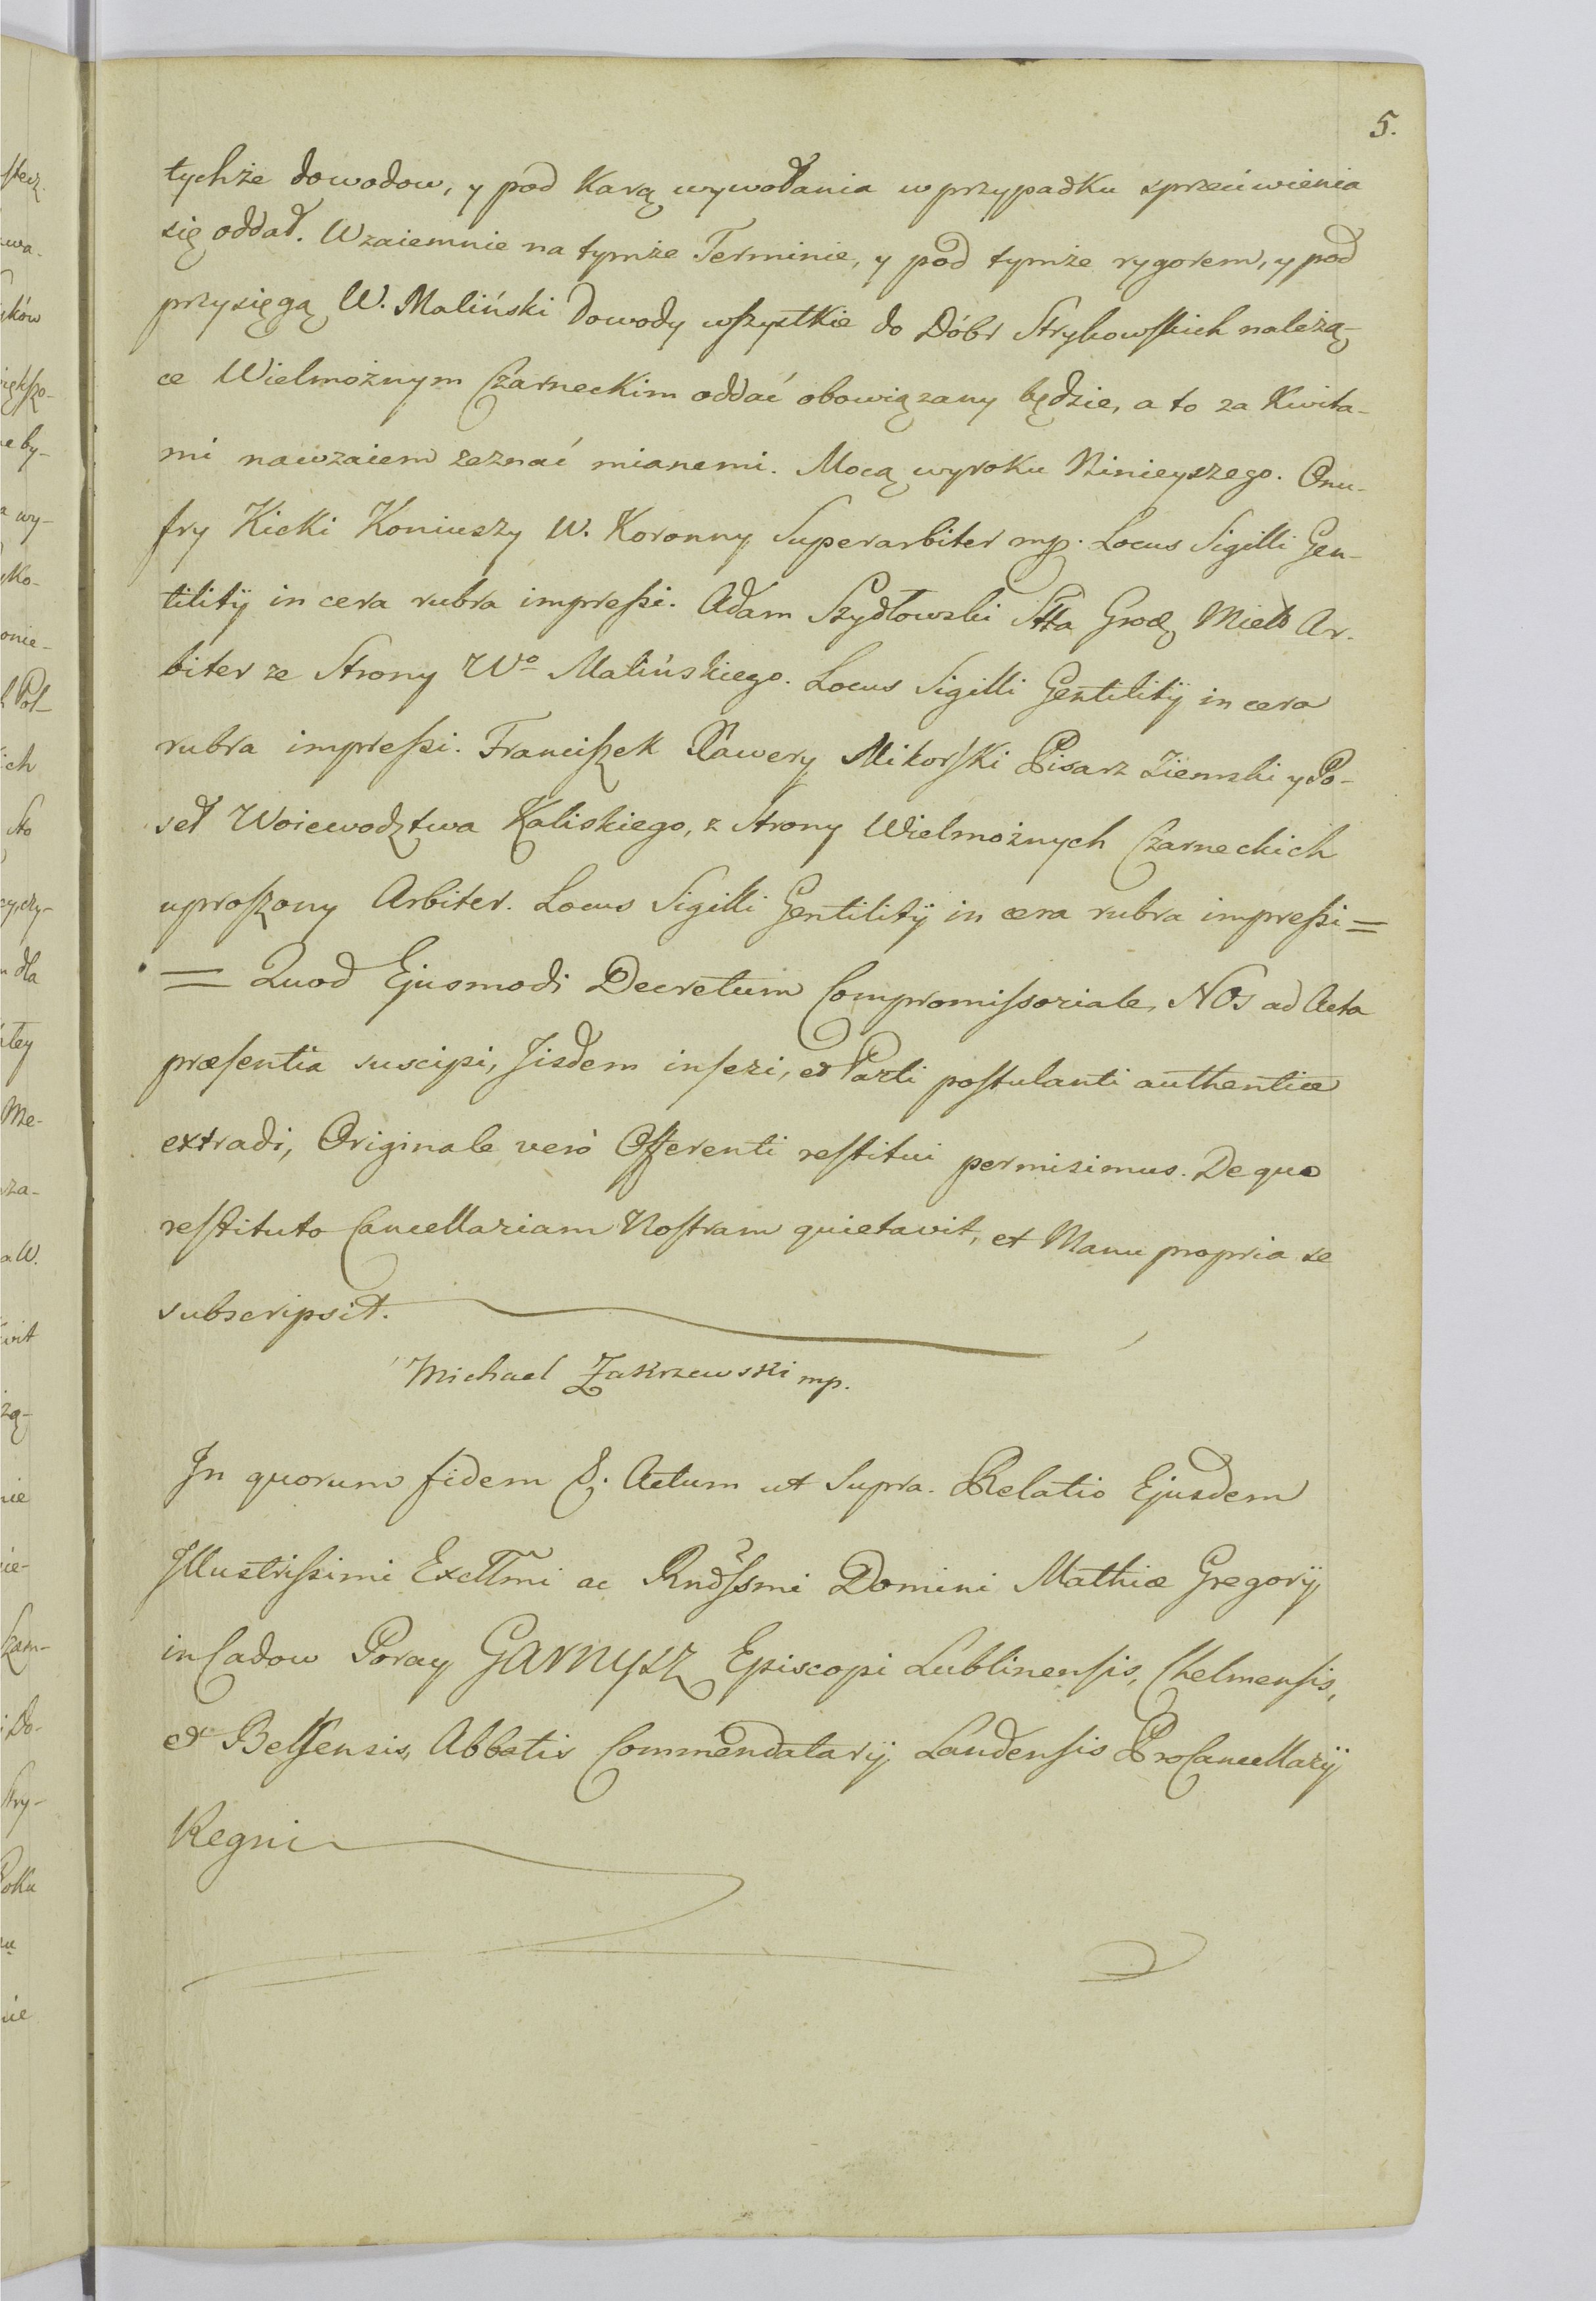 5.
tychże dowodow, y pod Karą wywołania w przypadku sprzeciwienia
się oddał. Wzaiemnie na tymże Terminie, y pod tymże rygorem, y pod
przysięgą W. Maliński Dowody wszystkie do Dóbr Strykowskich należą-
ce Wielmożnym Czarneckim oddać obowiązany będzie, a to za Kwita-
mi nawzaiem zeznać mianemi. Mocą wyroku Ninieyszego. Onu-
fry Kicki Koniuszy W. Koronny Superarbiter mp. Locus Sigilli Gen-
tilitÿ in cera rubra impressi. Adam Szydłowski Stta Grodz Miels Ar-
biter ze Strony Wo Malińskiego. Locus Sigilli Gentilitÿ in cera
rubra impressi. Franciszek Xawery Mikorski Pisarz Ziemski y Po-
seł Woiewodztwa Kaliskiego, z Strony Wielmożnych Czarneckich
uproszony Arbiter. Locus Sigilli Gentilitÿ in cera rubra impressi =
= Quod Ejusmodi Decretum Compromissoriale, NOs ad Acta
præsentia suscipi, Jisdem inseri, et Parti postulanti authentice
extradi, Originale verò Offerenti restitui permisimus. De quo
restituto Cancellariam Nostram quietavit, et Manu propria se
subscripsit.
Michael Zakrzewski mp.
In quorum fidem &. Actum ut Supra. Relatio Ejusdem
Jllustrissimi Excllmi ac Rndssmi Domini Mathiæ Gregorÿ
in Cadow Poray GARNYSZ Episcopi Lublinensis, Chelmensis,
et Belsensis, Abbatis Commendatarÿ Landensis ProCancellarÿ
Regni